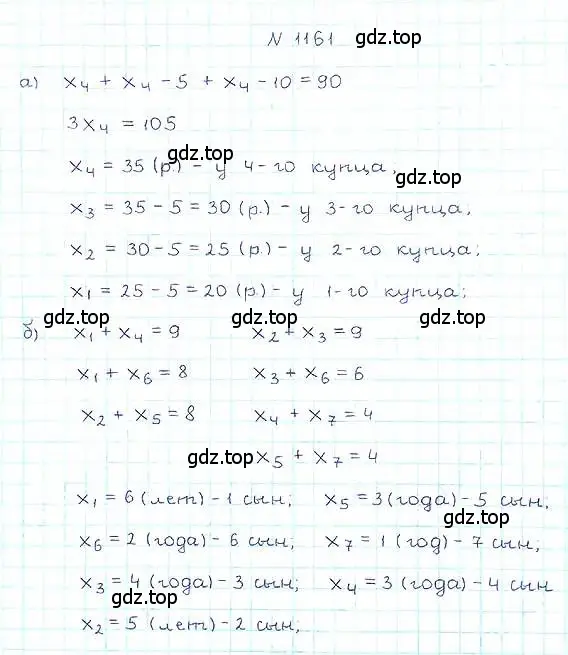 N 1161 gdz.top
а) x4 + x4 - 5 + x4 - 10 = 90
3x4 = 105
gdz.top
x4 = 35 (р.) - у 4-го купца;
gdz.top
x3 = 35 - 5 = 30 (р.) - у 3-го купца;
x2 = 30 - 5 = 25 (р.) - у 2-го купца;
x1 = 25 - 5 = 20 (р.) - у 1-го купца;
gdz.top gdz.top gdz.top
б) x1 + x4 = 9 x2 + x3 = 9
x1 + x6 = 8 x3 + x6 = 6
x2 + x5 = 8 x4 + x7 = 4
gdz.top x5 + x7 = 4
x1 = 6 (лет) - 1 сын; x5 = 3 (года) - 5 сын;
gdz.top
x6 = 2 (года) - 6 сын; x7 = 1 (год) - 7 сын;
x3 = 4 (года) - 3 сын; x4 = 3 (года) - 4 сын
gdz.top
x2 = 5 (лет) - 2 сын;